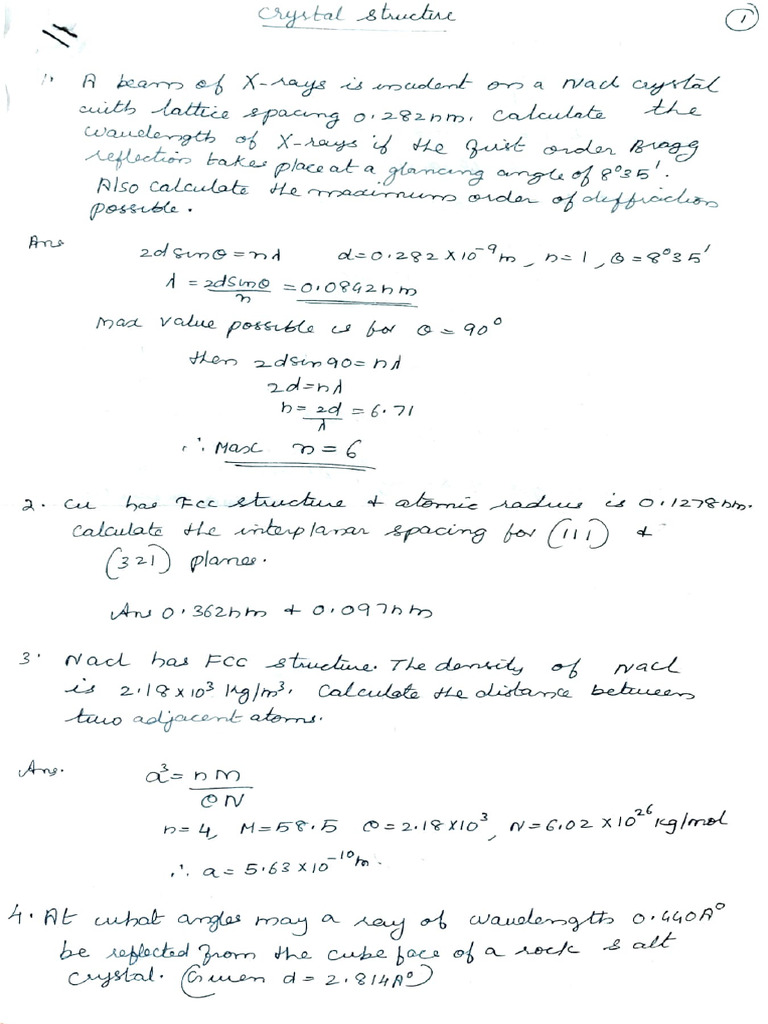 Crystal Structure
1
1. A beam of X-rays is incident on a Nacl crystal
with lattice spacing 0.282nm. Calculate the
wavelength of X-rays if the first order Bragg
reflection takes place at a glancing angle of 8°35'.
Also calculate the maximum order of diffraction
possible.
Ans 2d sinθ = nλ d = 0.282 X 10⁻⁹ m, n = 1, θ = 8°35'
λ = 2dsinθ/n = 0.0842nm
Max value possible is for θ = 90°
then 2dsin90 = nλ
2d = nλ
n = 2d/λ = 6.71
∴ Max n = 6
2. Cu has Fcc structure & atomic radius is 0.1278nm.
Calculate the interplanar spacing for (111) &
(321) planes.
Ans 0.362nm & 0.097nm
3. Nacl has FCC structure. The density of Nacl
is 2.18 x 10³ kg/m³. Calculate the distance between
two adjacent atoms.
Ans. a³ = nM/ρN
n = 4, M = 58.5 ρ = 2.18 X 10³, N = 6.02 X 10²⁶ kg/mol
∴ a = 5.63 X 10⁻¹⁰ m.
4. At what angles may a ray of wavelength 0.440A°
be reflected from the cube face of a rock salt
crystal. (Given d = 2.814A°)